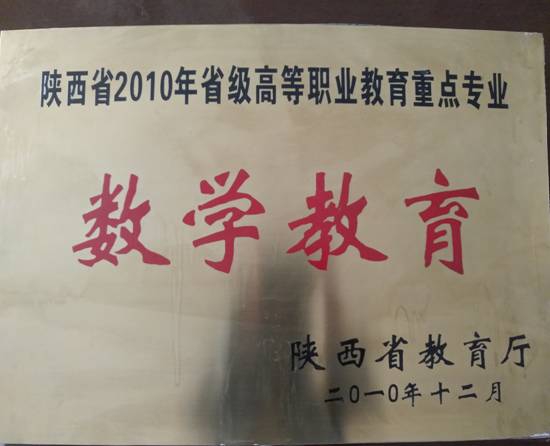 陕西省2010年省级高等职业教育重点专业
数学教育
陕西省教育厅
二〇一〇年十二月